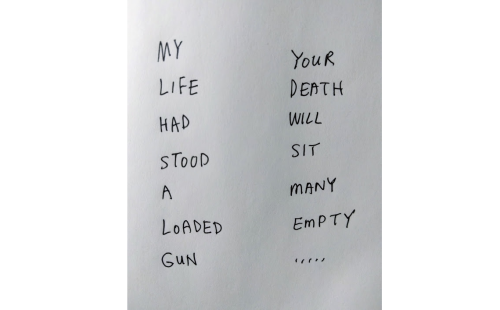 MY
LIFE
HAD
STOOD
A
LOADED
GUN
YOUR
DEATH
WILL
SIT
MANY
EMPTY
,,,,,